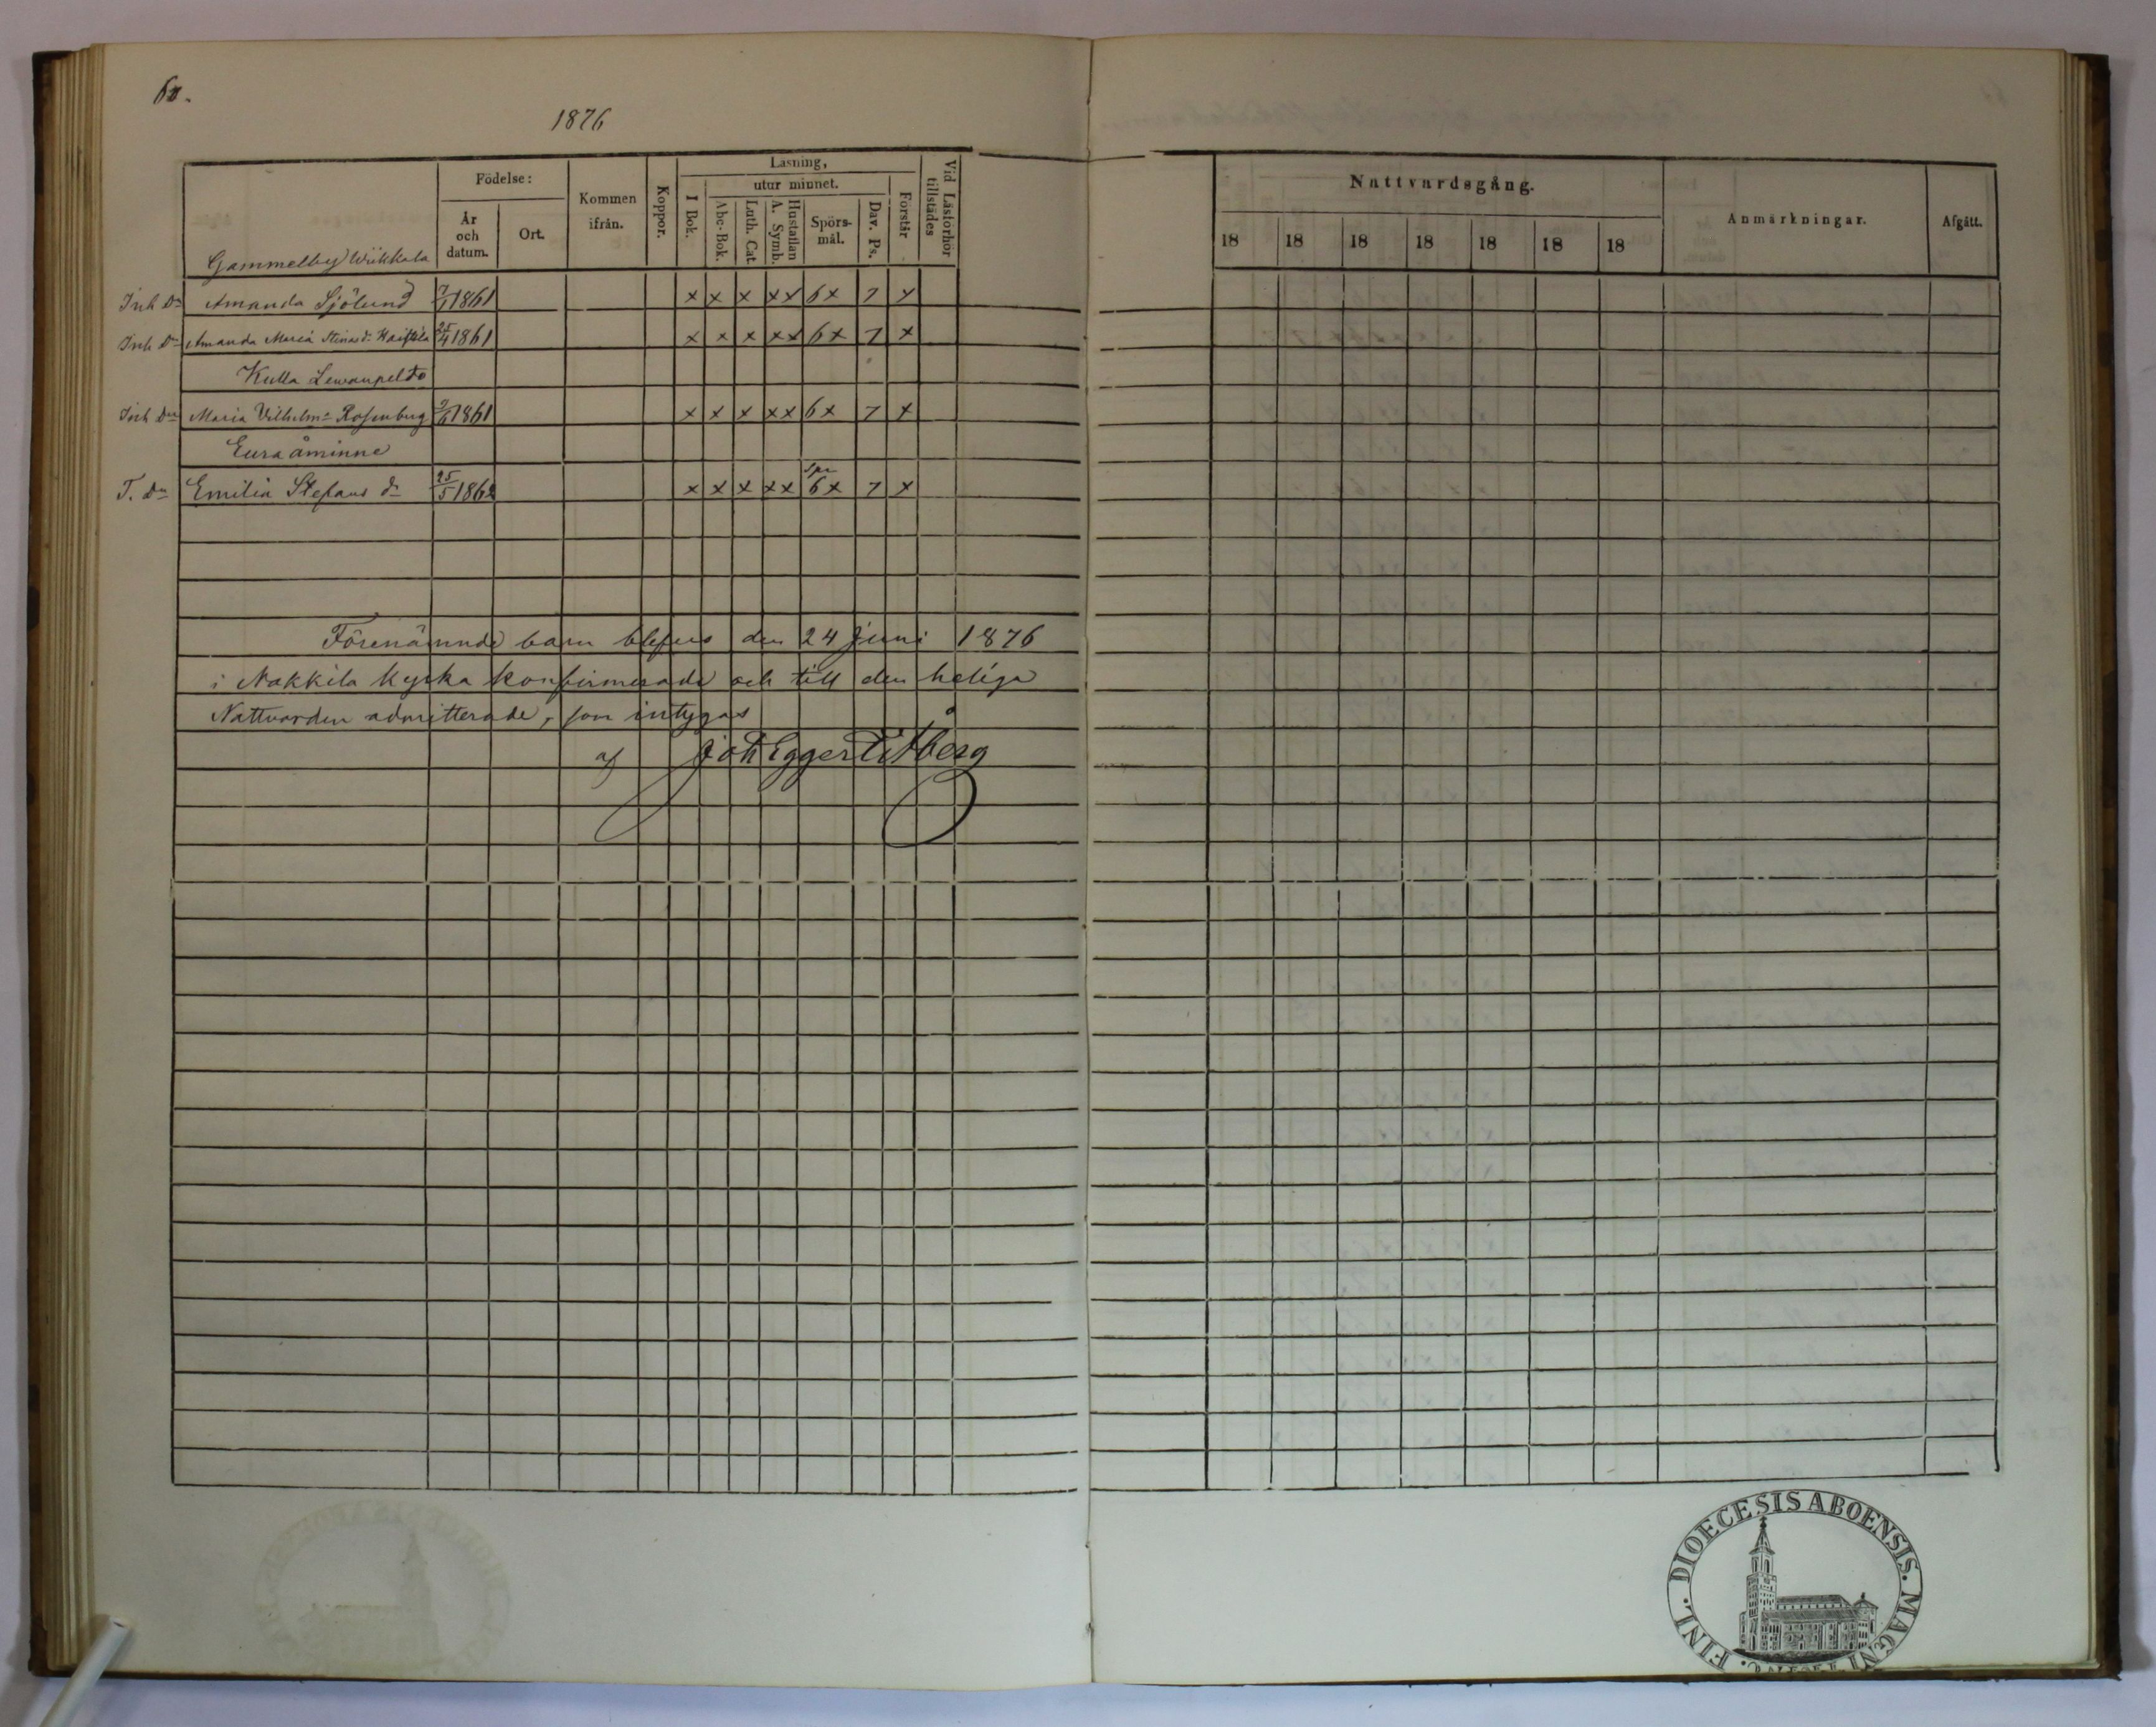 60.
1876
Gammelby Wiikkala
Födelse:
År och datum.
Ort.
Kommen ifrån.
Koppor.
Läsning,
I Bok.
utur minnet.
Abc-Bok.
Luth. Cat.
Hustaflan A. Symb.
Spörs-mål.
Dav. Ps.
Förstår
Vid Läsförhör tillstädes
Nattvardsgång.
18 18 18 18 18 18 18
Anmärkningar.
Afgått.
Inh Dr Amanda Sjölund 7/1 1861 x x x x x 6x 7 x
Inh Dr Amanda Maria Stinas dr 25/4 1861 x x x x x 6x 7 x
Kulla Lewanpelto
Inh Dr Maria Vilhelma Rosenberg 1861 x x x x x 6x 7 x
Euraåminne
T. Dr Emilia Stefans dr 25/5 1862 x x x x x 6x 7 x
Förenämnde barn blefvo den 24 Juni 1876
i Nakkila Kyrka konfirmerade och till den heliga
Nattvarden admitterade, som intygas
af Joh Eggert Åberg
FINL. DIOECESIS ABOENSIS. MAGNI